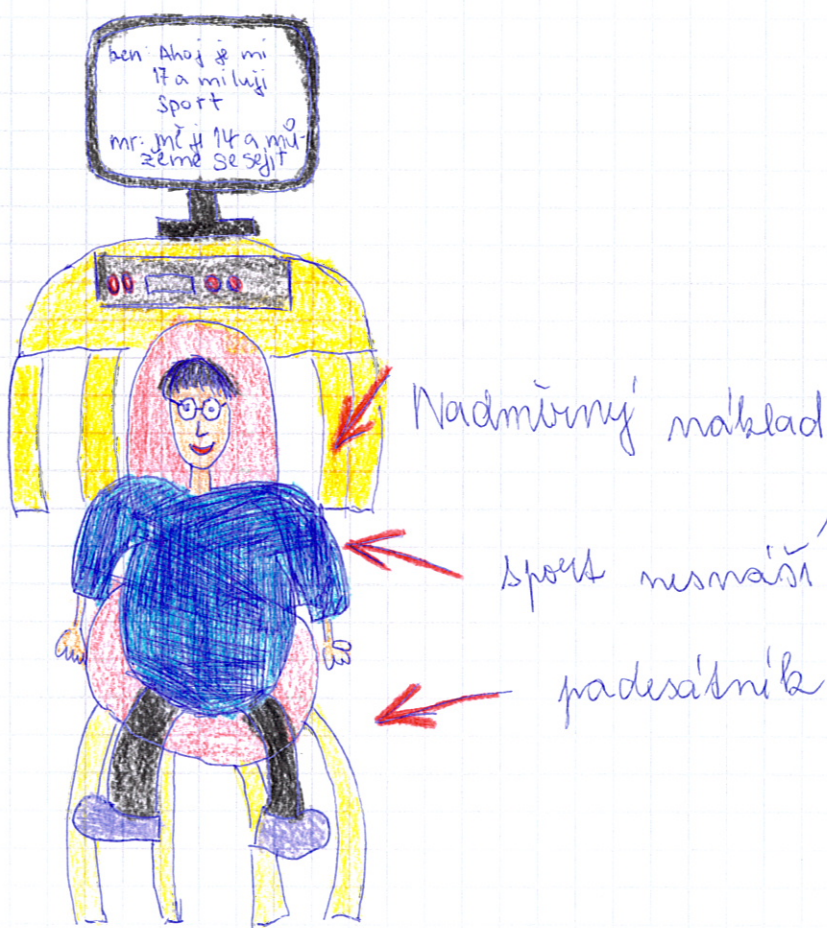 ben: Ahoj je mi
17 a miluji
sport
mr: mě je 14 a mů-
žeme se sejít
Nadměrný náklad
sport nesnáší
padesátník